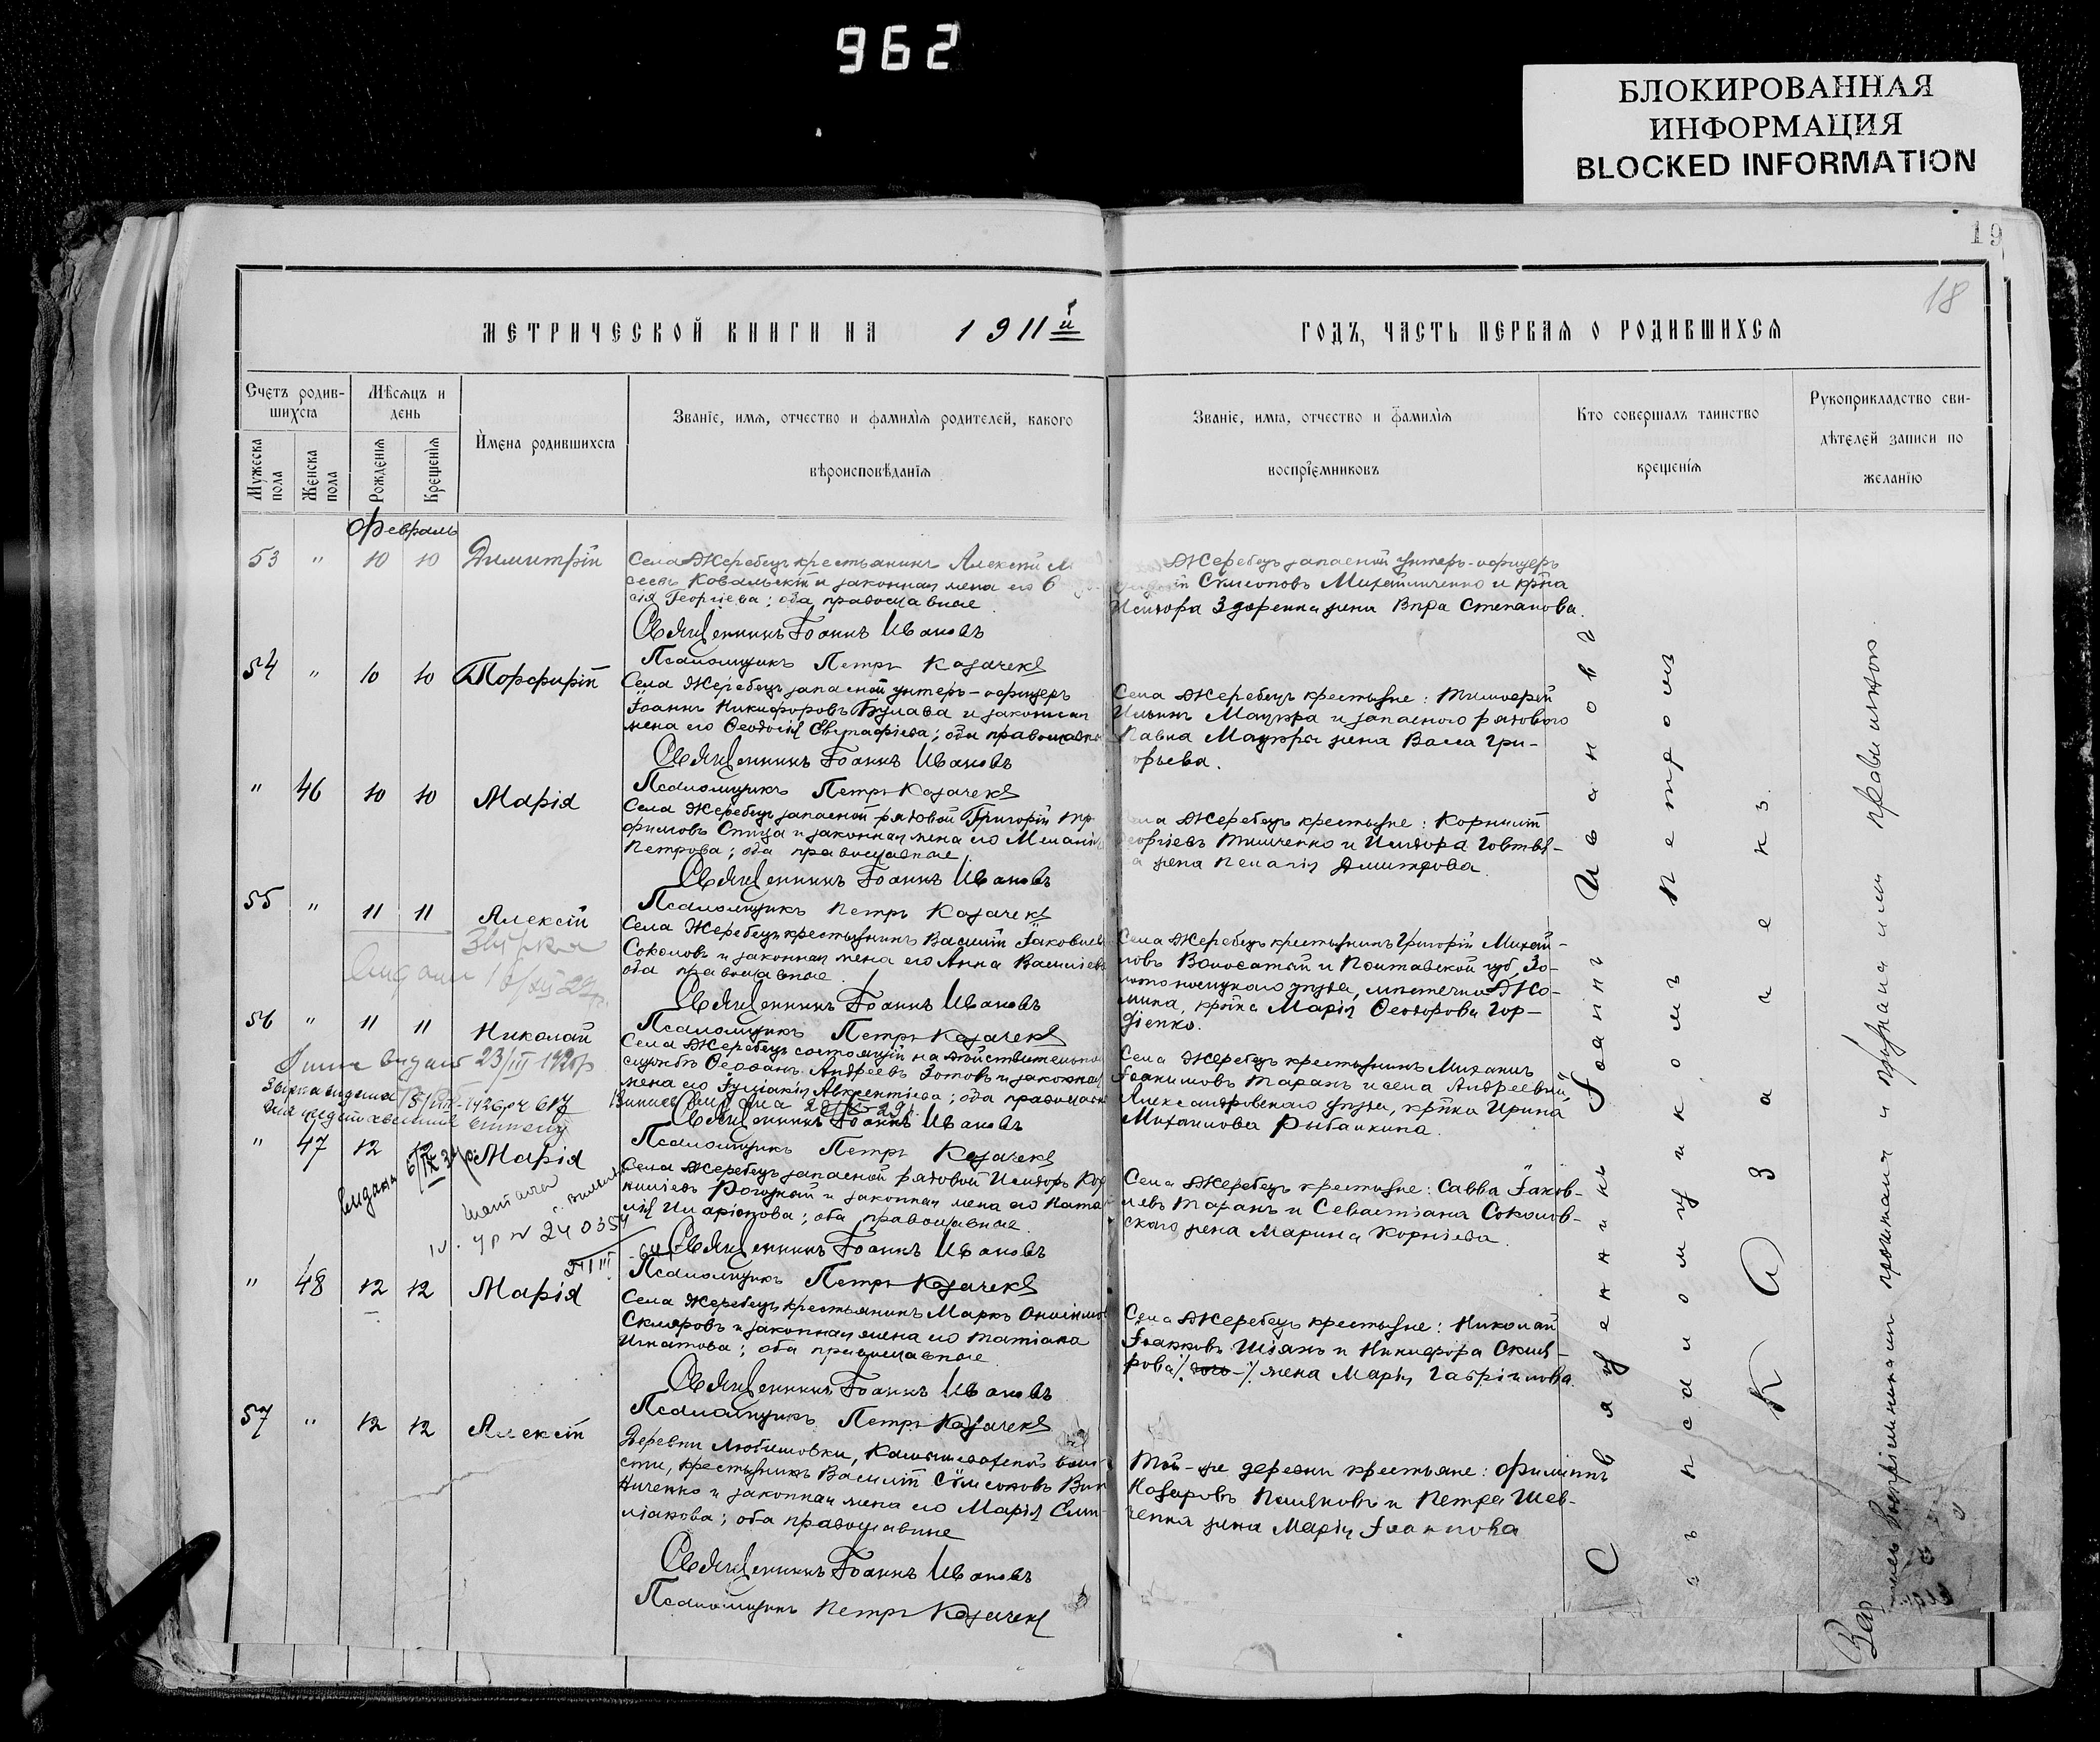 962
БЛОКИРОВАННАЯ
ИНФОРМАЦИЯ
BLOCKED INFORMATION
19
18
МЕТРИЧЕСКОЙ КНИГИ НА 1911й ГОДЪ, ЧАСТЬ ПЕРВАЯ О РОДИВШИХСЯ
Счетъ родив-
шихся
Мужеска пола
Женска пола
Мѣсяцъ и
день
Рожденія
Крещенія
Имена родившихся
Званіе, имя, отчество и фамилія родителей, какого
вѣроисповѣданія
Званіе, имя, отчество и фамилія
воспріемниковъ
Кто совершалъ таинство
крещенія
Рукоприкладство сви-
дѣтелей записи по
желанію
Февраль
53 " 10 10 Димитрій
Села Жеребецъ крестьянинъ Алексій
сеевъ Ковальскій и законная жена его
сія Георгіева; оба православные
Священникъ Іоаннъ Ивановъ
Псаломщикъ Петръ Козачекъ
Жеребецъ запасной унтеръ-офицеръ
Сѵмеоновъ Михайличенко и кр-на
Исидора Здоренка жена Вѣра Степанова.
54 " 10 10 Порфирій
Села Жеребецъ запасной унтеръ-офицеръ
Іоаннъ Никифоровъ Булава и законная
жена его Ѳеодосія Евстафіева; оба православные
Священникъ Іоаннъ Ивановъ
Псаломщикъ Петръ Козачекъ
Села Жеребецъ крестьяне: Тимоѳей
Ильинъ Мацюра и запасного рядового
Павла Мацюры жена Васса Гри-
орьева.
" 46 10 10 Марія
Села Жеребецъ запасной рядовой Григорій Тро
фимовъ Спица и законная жена его Меланія
Петрова; оба православные.
Священникъ Іоаннъ Ивановъ
Псаломщикъ Петръ Козачекъ
Жеребецъ крестьяне: Корнилій
еоргіевъ Тимченко и Исидора Говтвя-
а жена Пелагія Димитрова.
55 " 11 11 Алексій
Села Жеребецъ крестьянинъ Василій Іаковлевъ
Соколовъ и законная жена его Анна Василіева
оба православные
Священникъ Іоаннъ Ивановъ
Псаломщикъ Петръ Козачекъ
Села Жеребецъ крестьянинъ Григорій Михай-
ловъ Волосатый и Полтавской губ., Зо-
лотоношскаго уѣзда, мѣстечка Жо-
мина, кр-ка Марія Ѳеодорова Гор-
діенко.
56 " 11 11 Николай
23/III
Села Жеребецъ состоящій на дѣйствительной
службѣ Ѳеофанъ Андреевъ Зотовъ и законная
жена его Іуліанія Авксентіева; оба православные
Священникъ Іоаннъ Ивановъ
Псаломщикъ Петръ Козачекъ
Села Жеребецъ крестьянинъ Михаилъ
Іоакимовъ Таранъ и села Андреевки,
Александровскаго уѣзда, кр-ка Ирина
Михаилова Рыбалкина.
" 47 12 12 Марія
Села Жеребецъ запасной рядовой Исидоръ Кор
ниліевъ Рогожкій и законная жена его Ната
лія Иларіонова; оба православные
Священникъ Іоаннъ Ивановъ
Псаломщикъ Петръ Козачекъ
Села Жеребецъ крестьяне: Савва Іаков-
левъ Таранъ и Севастіана Соколов-
скаго жена Марина Корніева.
" 48 12 12 Марія
Села Жеребецъ крестьянинъ Маркъ Онисимовъ
Скляровъ и законная жена его Татіана
Игнатова; оба православные
Священникъ Іоаннъ Ивановъ
Псаломщикъ Петръ Козачекъ
Села Жеребецъ крестьяне: Николай
Іоанновъ Шіянъ и Никифора Скля-
рова жена Марія Гавріилова.
57 " 12 12 Алексій
Деревни Любимовки, Камышеватской воло-
сти, крестьянинъ Василій Сѵмеоновъ Вин
ниченко и законная жена его Марія Еми-
ліанова; оба православные
Священникъ Іоаннъ Ивановъ
Псаломщикъ Петръ Козачекъ
Той-же деревни крестьяне: Филиппъ
Назаровъ Поляковъ и Петра Шев-
ченка жена Марія Іоаннова
Священникъ Іоаннъ Ивановъ
съ псаломщикомъ Петромъ
Козачекъ.